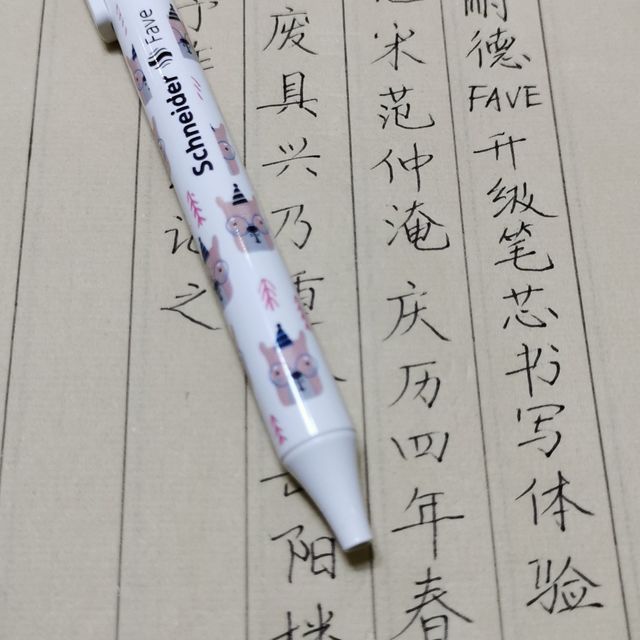 耐德FAVE升级笔芯书写体验
宋范仲淹庆历四年春
废具兴乃重阳
记之
Schneider Fave